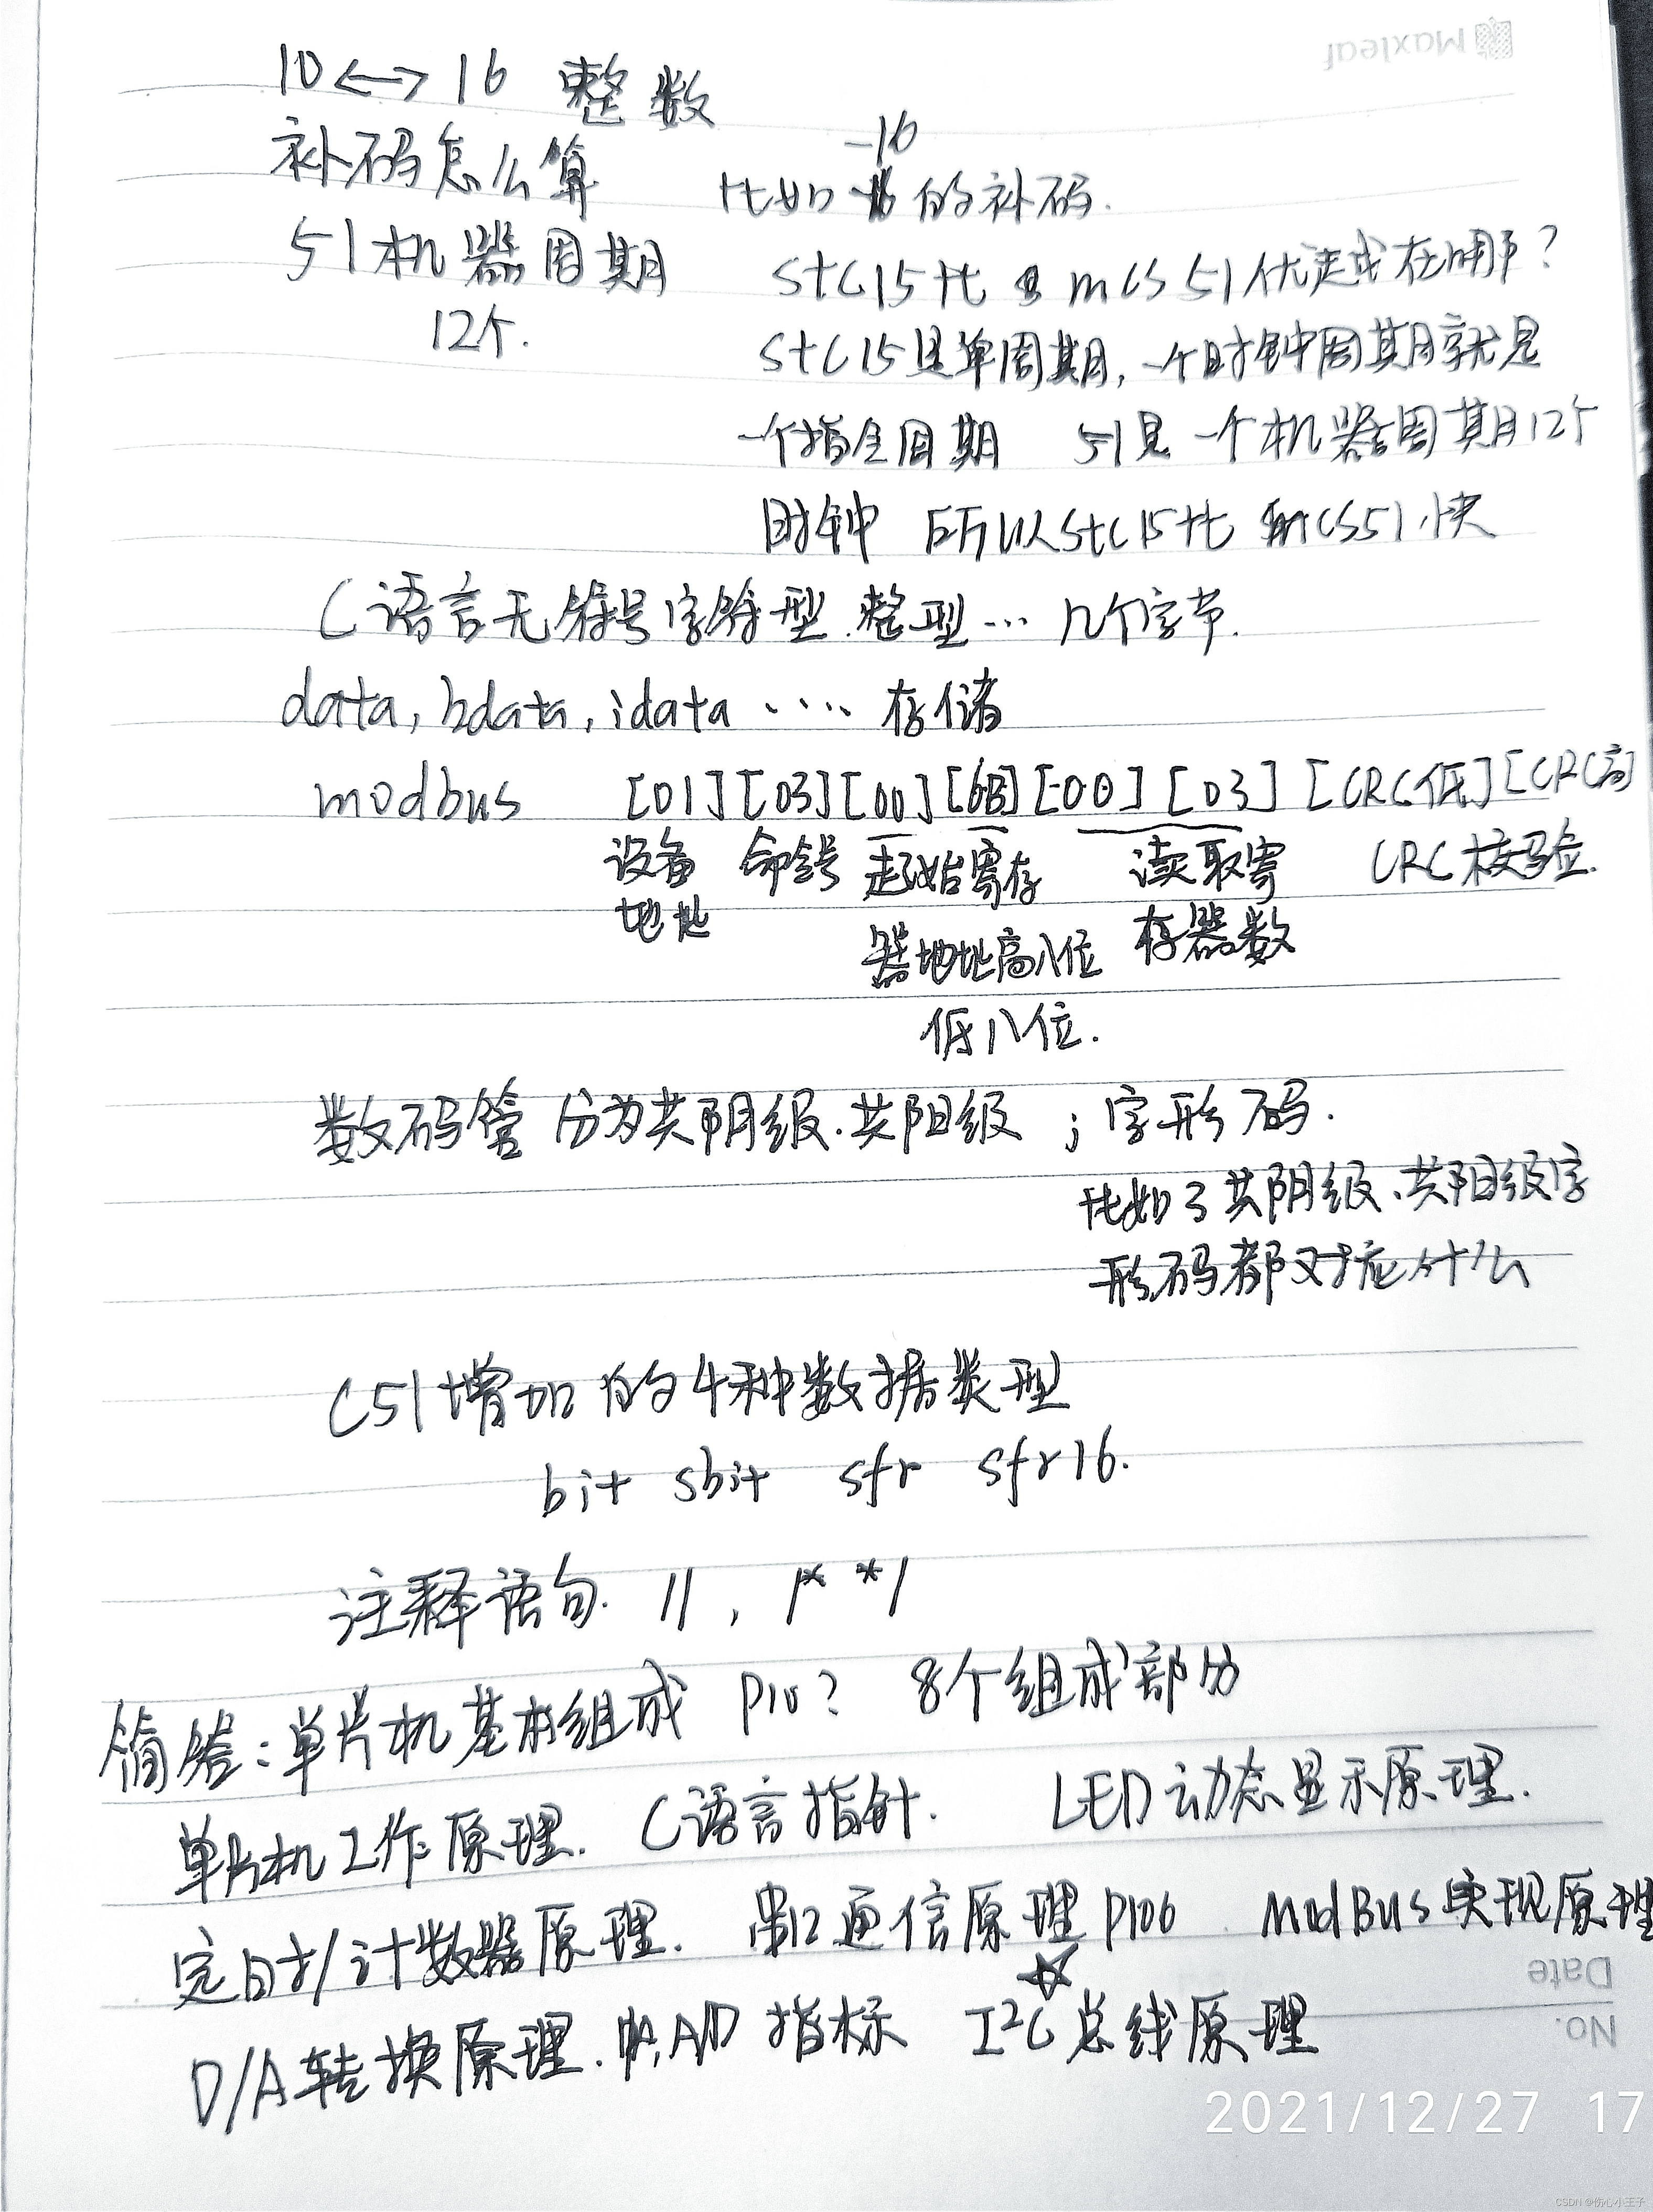 Maxleaf
10<->16 整数
补码怎么算 比如 -16 的补码.
51机器周期 STC15比 MCS51优越或在哪?
12个. STC15是单周期,一个时钟周期就是
一个指令周期 51是一个机器周期12个
时钟 所以STC15比 MCS51快
C语言无符号字符型.整型… 几个字节.
data, bdata, idata ···· 存储
modbus [01][03][00][6B][00][03] [CRC低][CRC高]
设备 命令号 起始寄存 读取寄 CRC校验.
地址 器地址高八位 存器数
低八位.
数码管 分为共阴级.共阳级 ; 字形码.
比如3共阴级、共阳级字
形码都对应什么
C51增加的4种数据类型
bit sbit sfr sfr16.
注释语句. //, /* */
简答:单片机基本组成 P10? 8个组成部分
单片机工作原理. C语言指针. LED动态显示原理.
定时/计数器原理. 串口通信原理 P106 ModBus实现原理
D/A转换原理. A/D 指标 I²C总线原理
Date
No.
2021/12/27 17
CSDN @伤心小王子